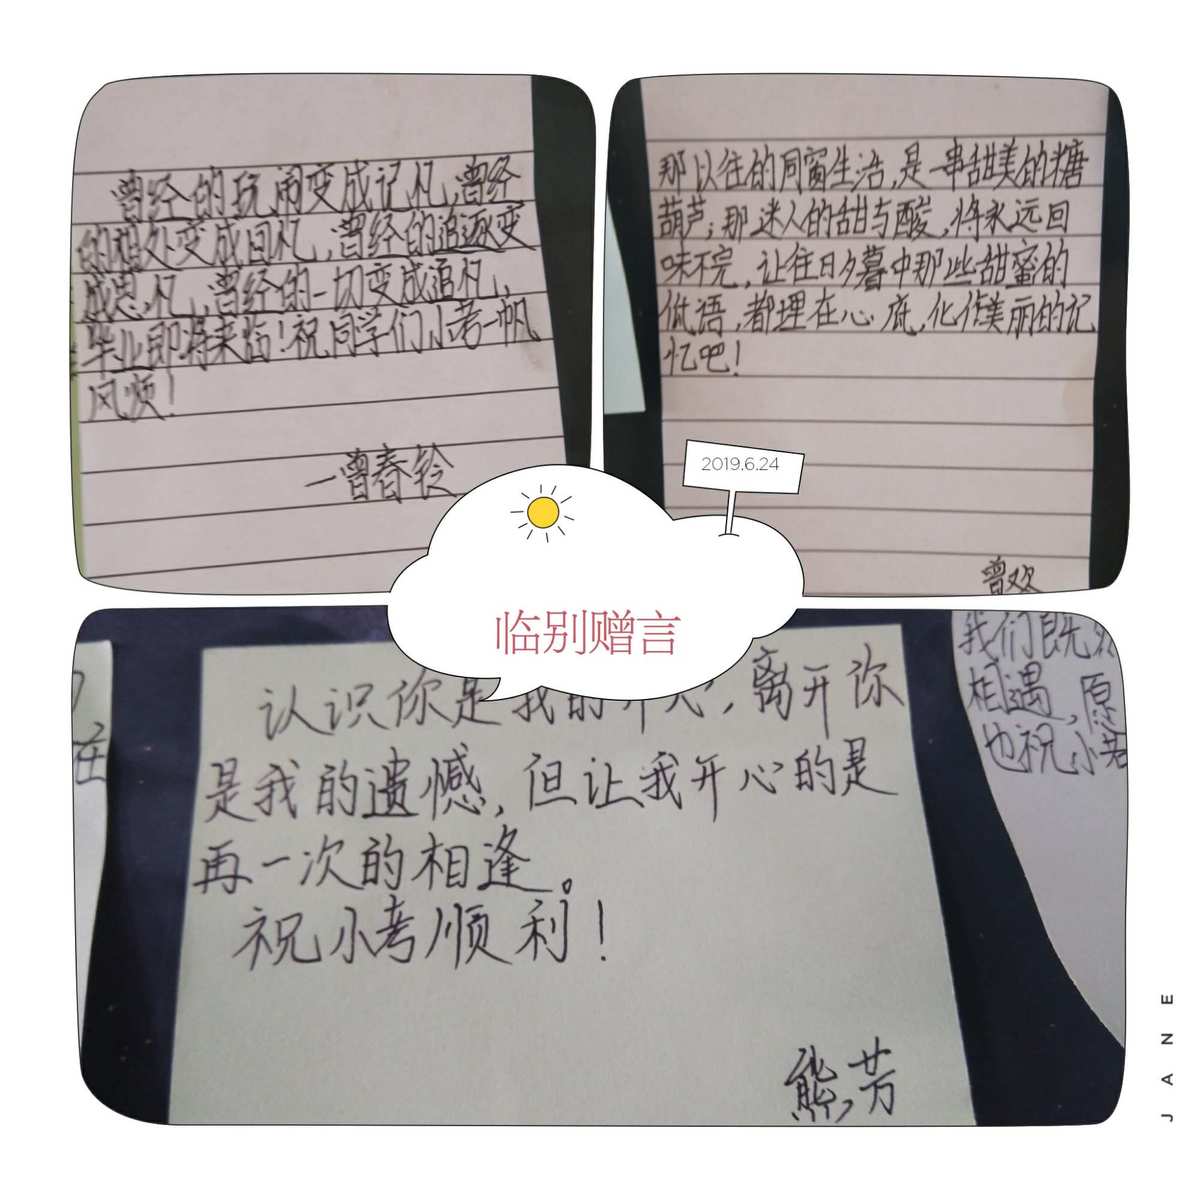 曾经的玩闹变成记忆,曾经
的相处变成回忆,曾经的追逐变
成思忆,曾经的一切变成追忆,
毕业即将来临!祝同学们小考一帆
风顺!
一曾春铃
那以往的同窗生活,是一串甜美的糖
葫芦;那迷人的甜与酸,将永远回
味不完,让往日夕暮中那些甜蜜的
低语,都埋在心底,化作美丽的记
忆吧!
曾欢
2019.6.24
临别赠言
认识你是我的开心,离开你
是我的遗憾,但让我开心的是
再一次的相逢。
祝小考顺利!
熊芳
在
我们既然
相遇,愿
也祝小考
JANE